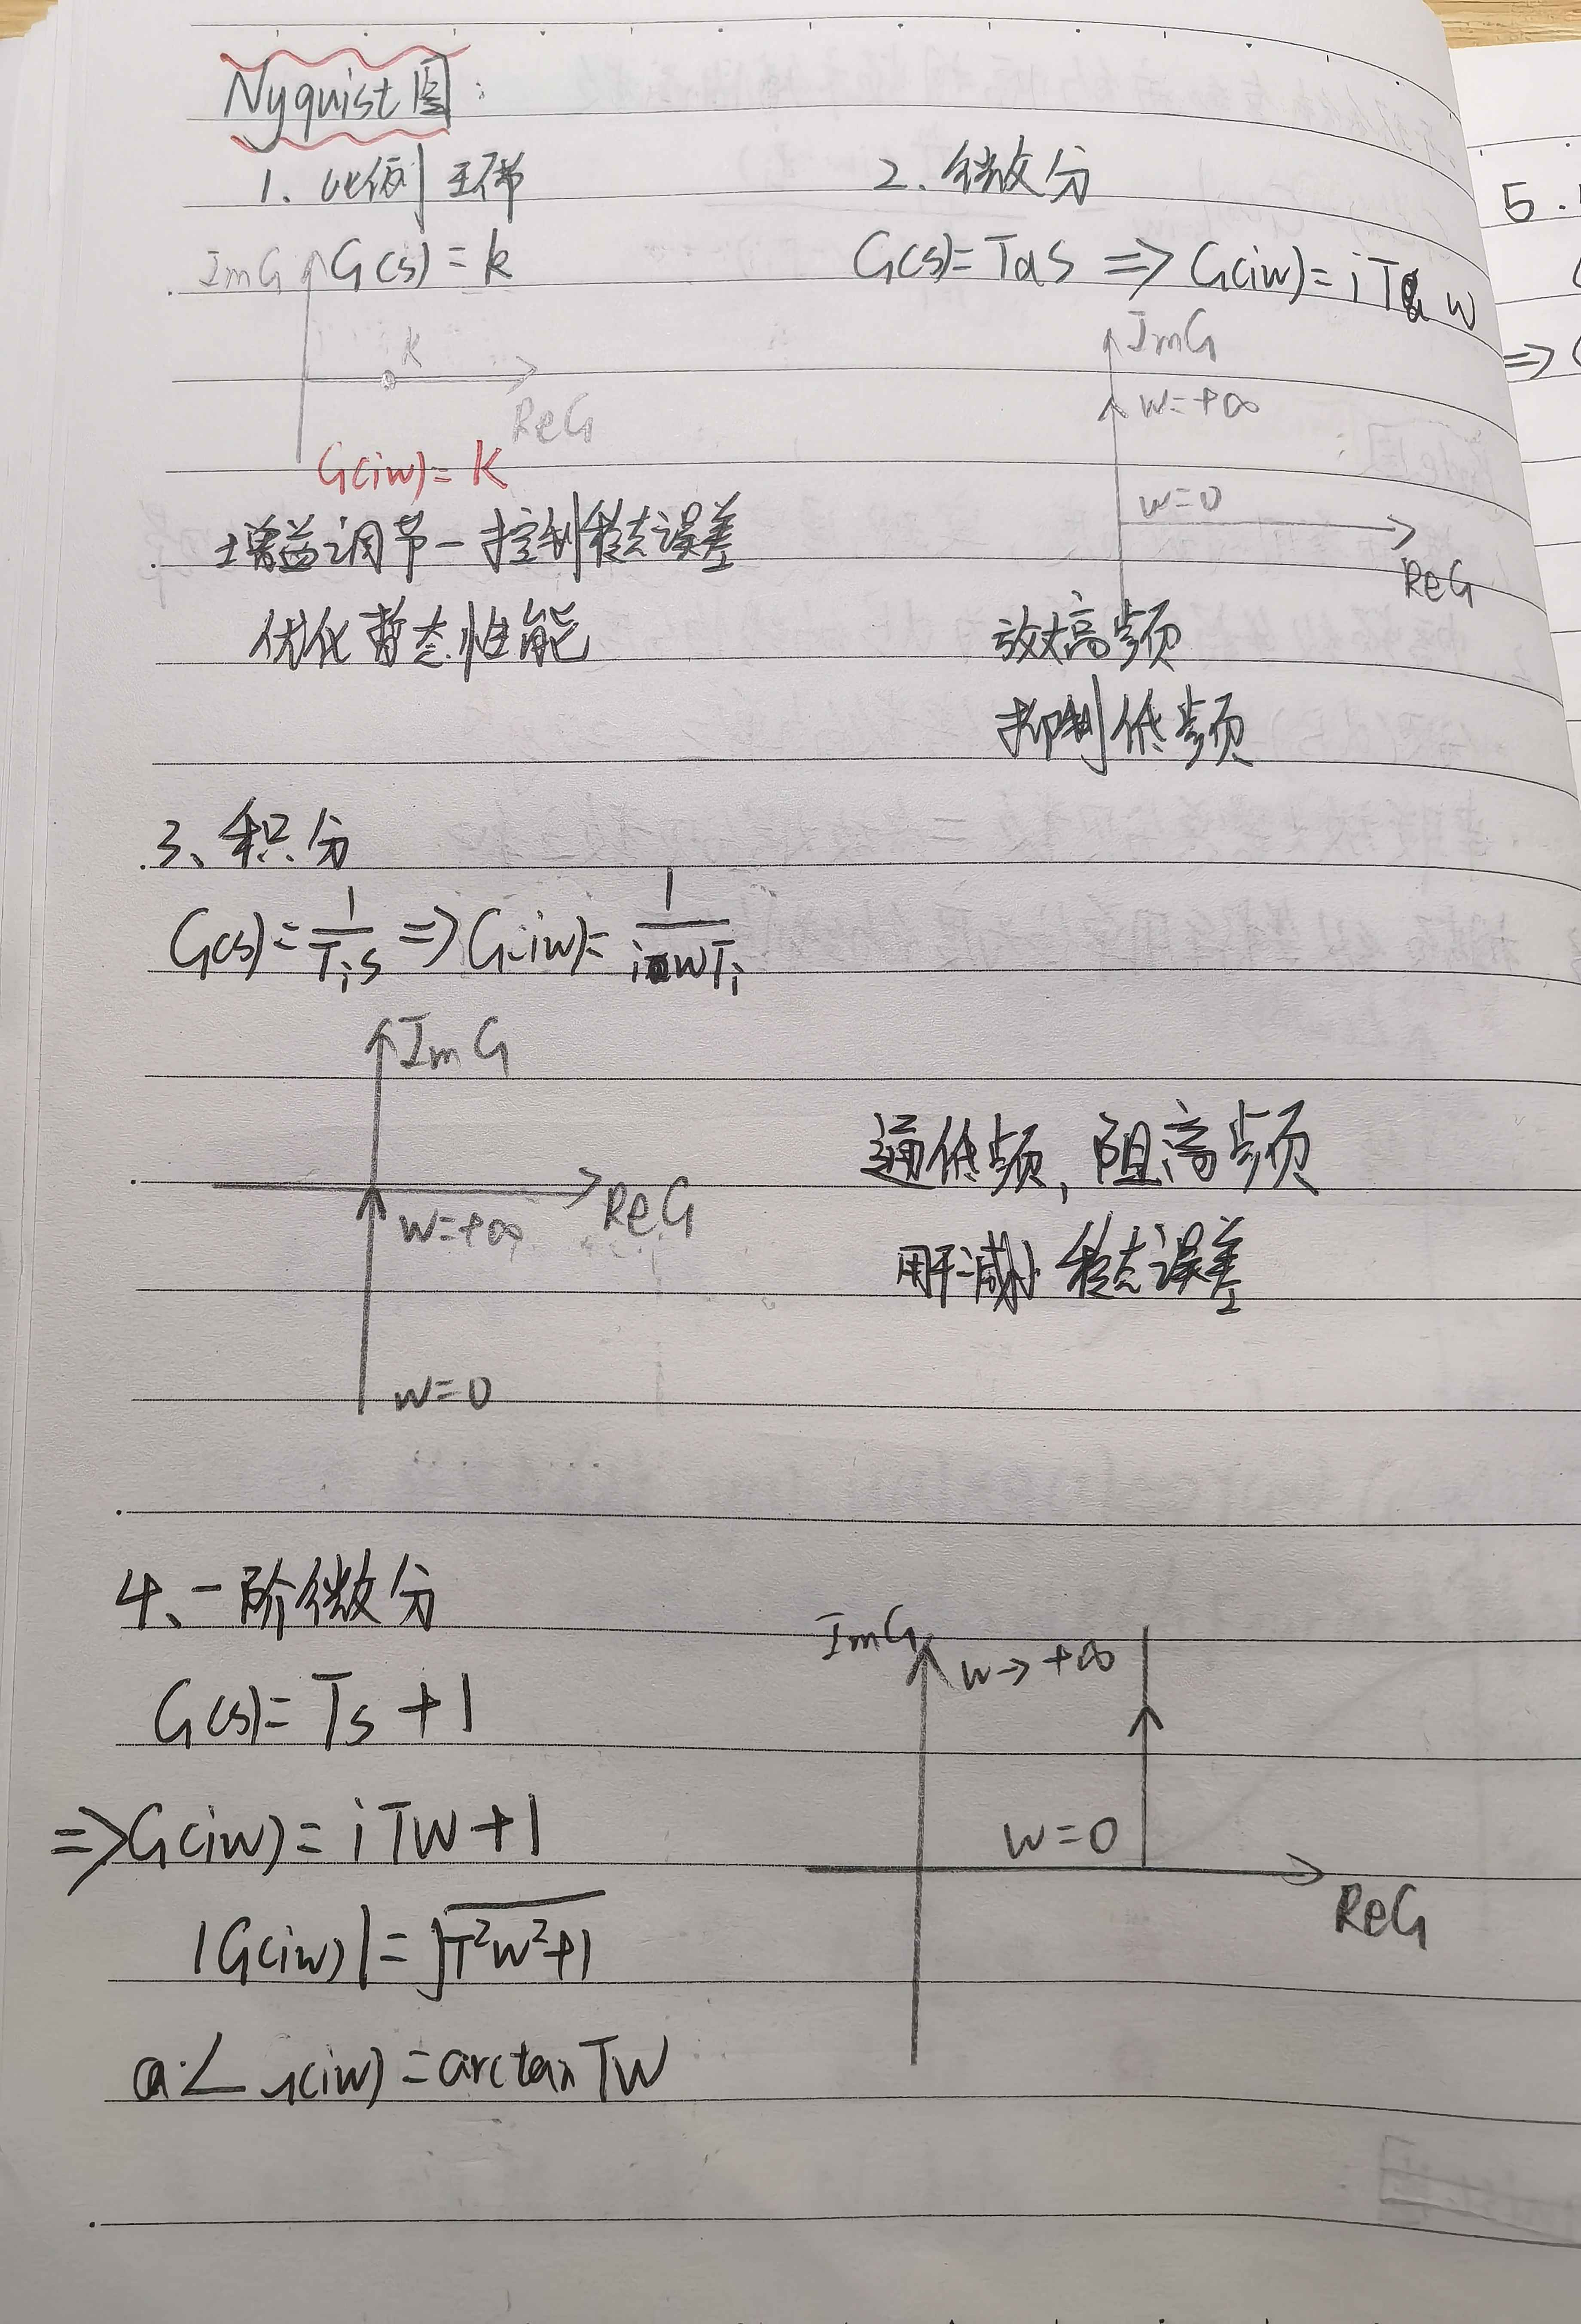 Nyquist图:
1. 比例环节
G(s)=k
ImG
k
ReG
G(iw)=K
增益调节-控制稳态误差
优化暂态性能
2. 微分
G(s)=TdS => G(iw)=iTd w
ImG
w=+∞
w=0
ReG
放大高频
抑制低频
3、积分
G(s)=1/Tis => G(iw)=1/iwTi
ImG
ReG
w=+∞
w=0
通低频,阻高频
用于减小稳态误差
4、一阶微分
G(s)=Ts+1
=>G(iw)=iTw+1
|G(iw)|=√T²w²+1
∠G(iw)=arctanTw
ImG
w→+∞
w=0
ReG
5.
=>